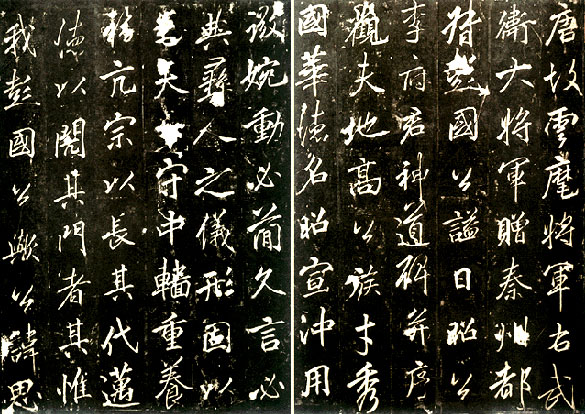 唐故雲麾將軍右武
衛大將軍贈秦州都
督彭國公謚曰昭公
李府君神道碑并序
觀夫地高公族才秀
國華德名昭宣沖用
微婉動必簡久言必
典彝人之儀形固以
夫守中轖重養
亢宗以長其代邁
德以閥其門者其惟
我彭國公歟公諱思